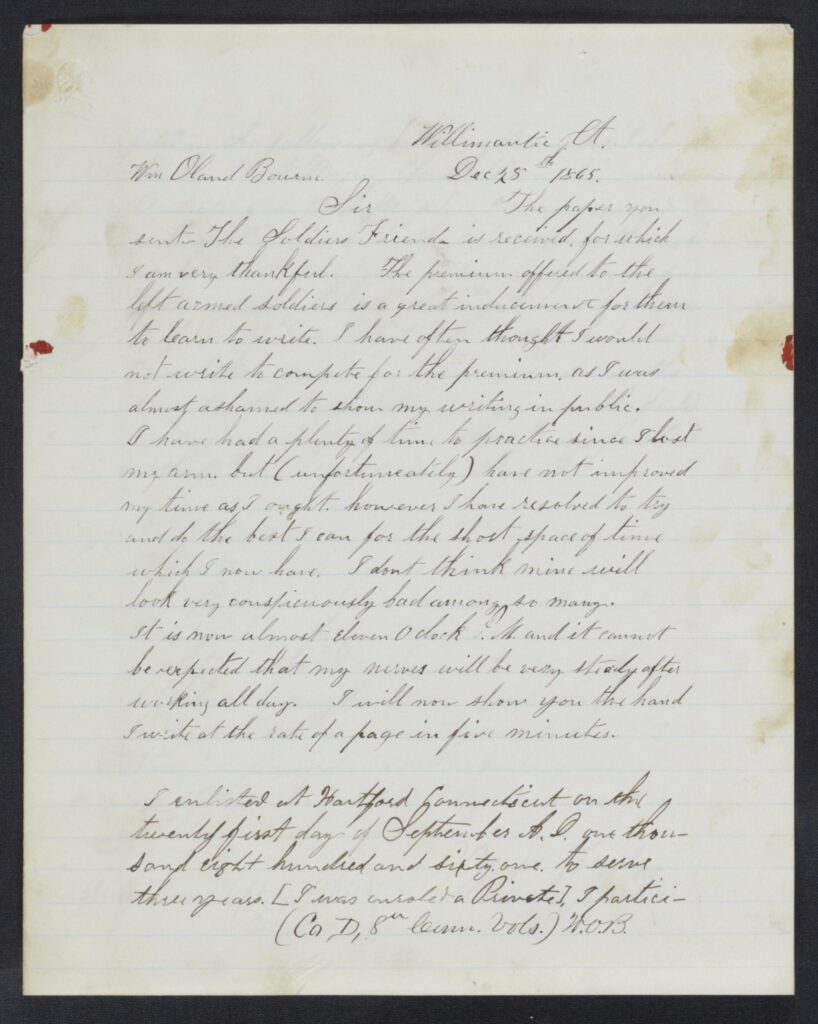 Willimantic Ct.
Wm Oland Bourne. Dec 28th 1865.
Sir The paper you
sent The Soldiers Friend is received, for which
I am very thankful. The premium offered to the
left armed soldiers is a great inducement for them
to learn to write. I have often thought I would
not write to compete for the premium, as I was
almost ashamed to show my writing in public.
I have had a plenty of time to practice since I lost
my arm but (unfortunately) have not improved
my time as I ought. however I have resolved to try
and do the best I can for the short space of time
which I now have. I dont think mine will
look very conspicuously bad among so many.
It is now almost eleven O clock P. M. and it cannot
be expected that my nerves will be very steady after
working all day. I will now show you the hand
I write at the rate of a page in five minutes.
I enlisted at Hartford Connecticut on the
twenty first day of September A. D. one thou-
sand eight hundred and sixty one. to serve
three years. [I was enroled a Private], I partici-
(Co D, 8th Conn. Vols.) W.O.B.